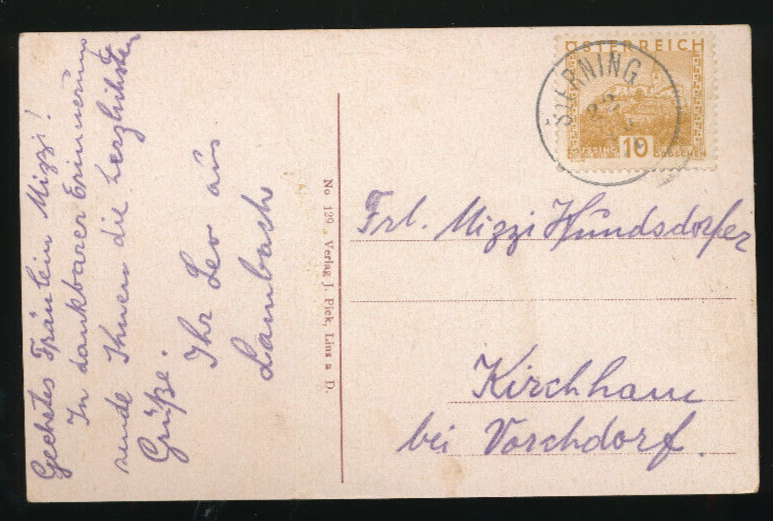 Geehrtes Fräulein Mizzi!
In dankbarer Erinnerung
sende Ihnen die herzlichsten
Grüße.
Ihr Leo aus
Lambach
No 129 Verlag J. Pick, Linz a D.
ÖSTERREICH
GÜSSING 10 GROSCHEN
SIERNING
Frl. Mizzi Hundsdorfer
Kirchham
bei Vorchdorf.